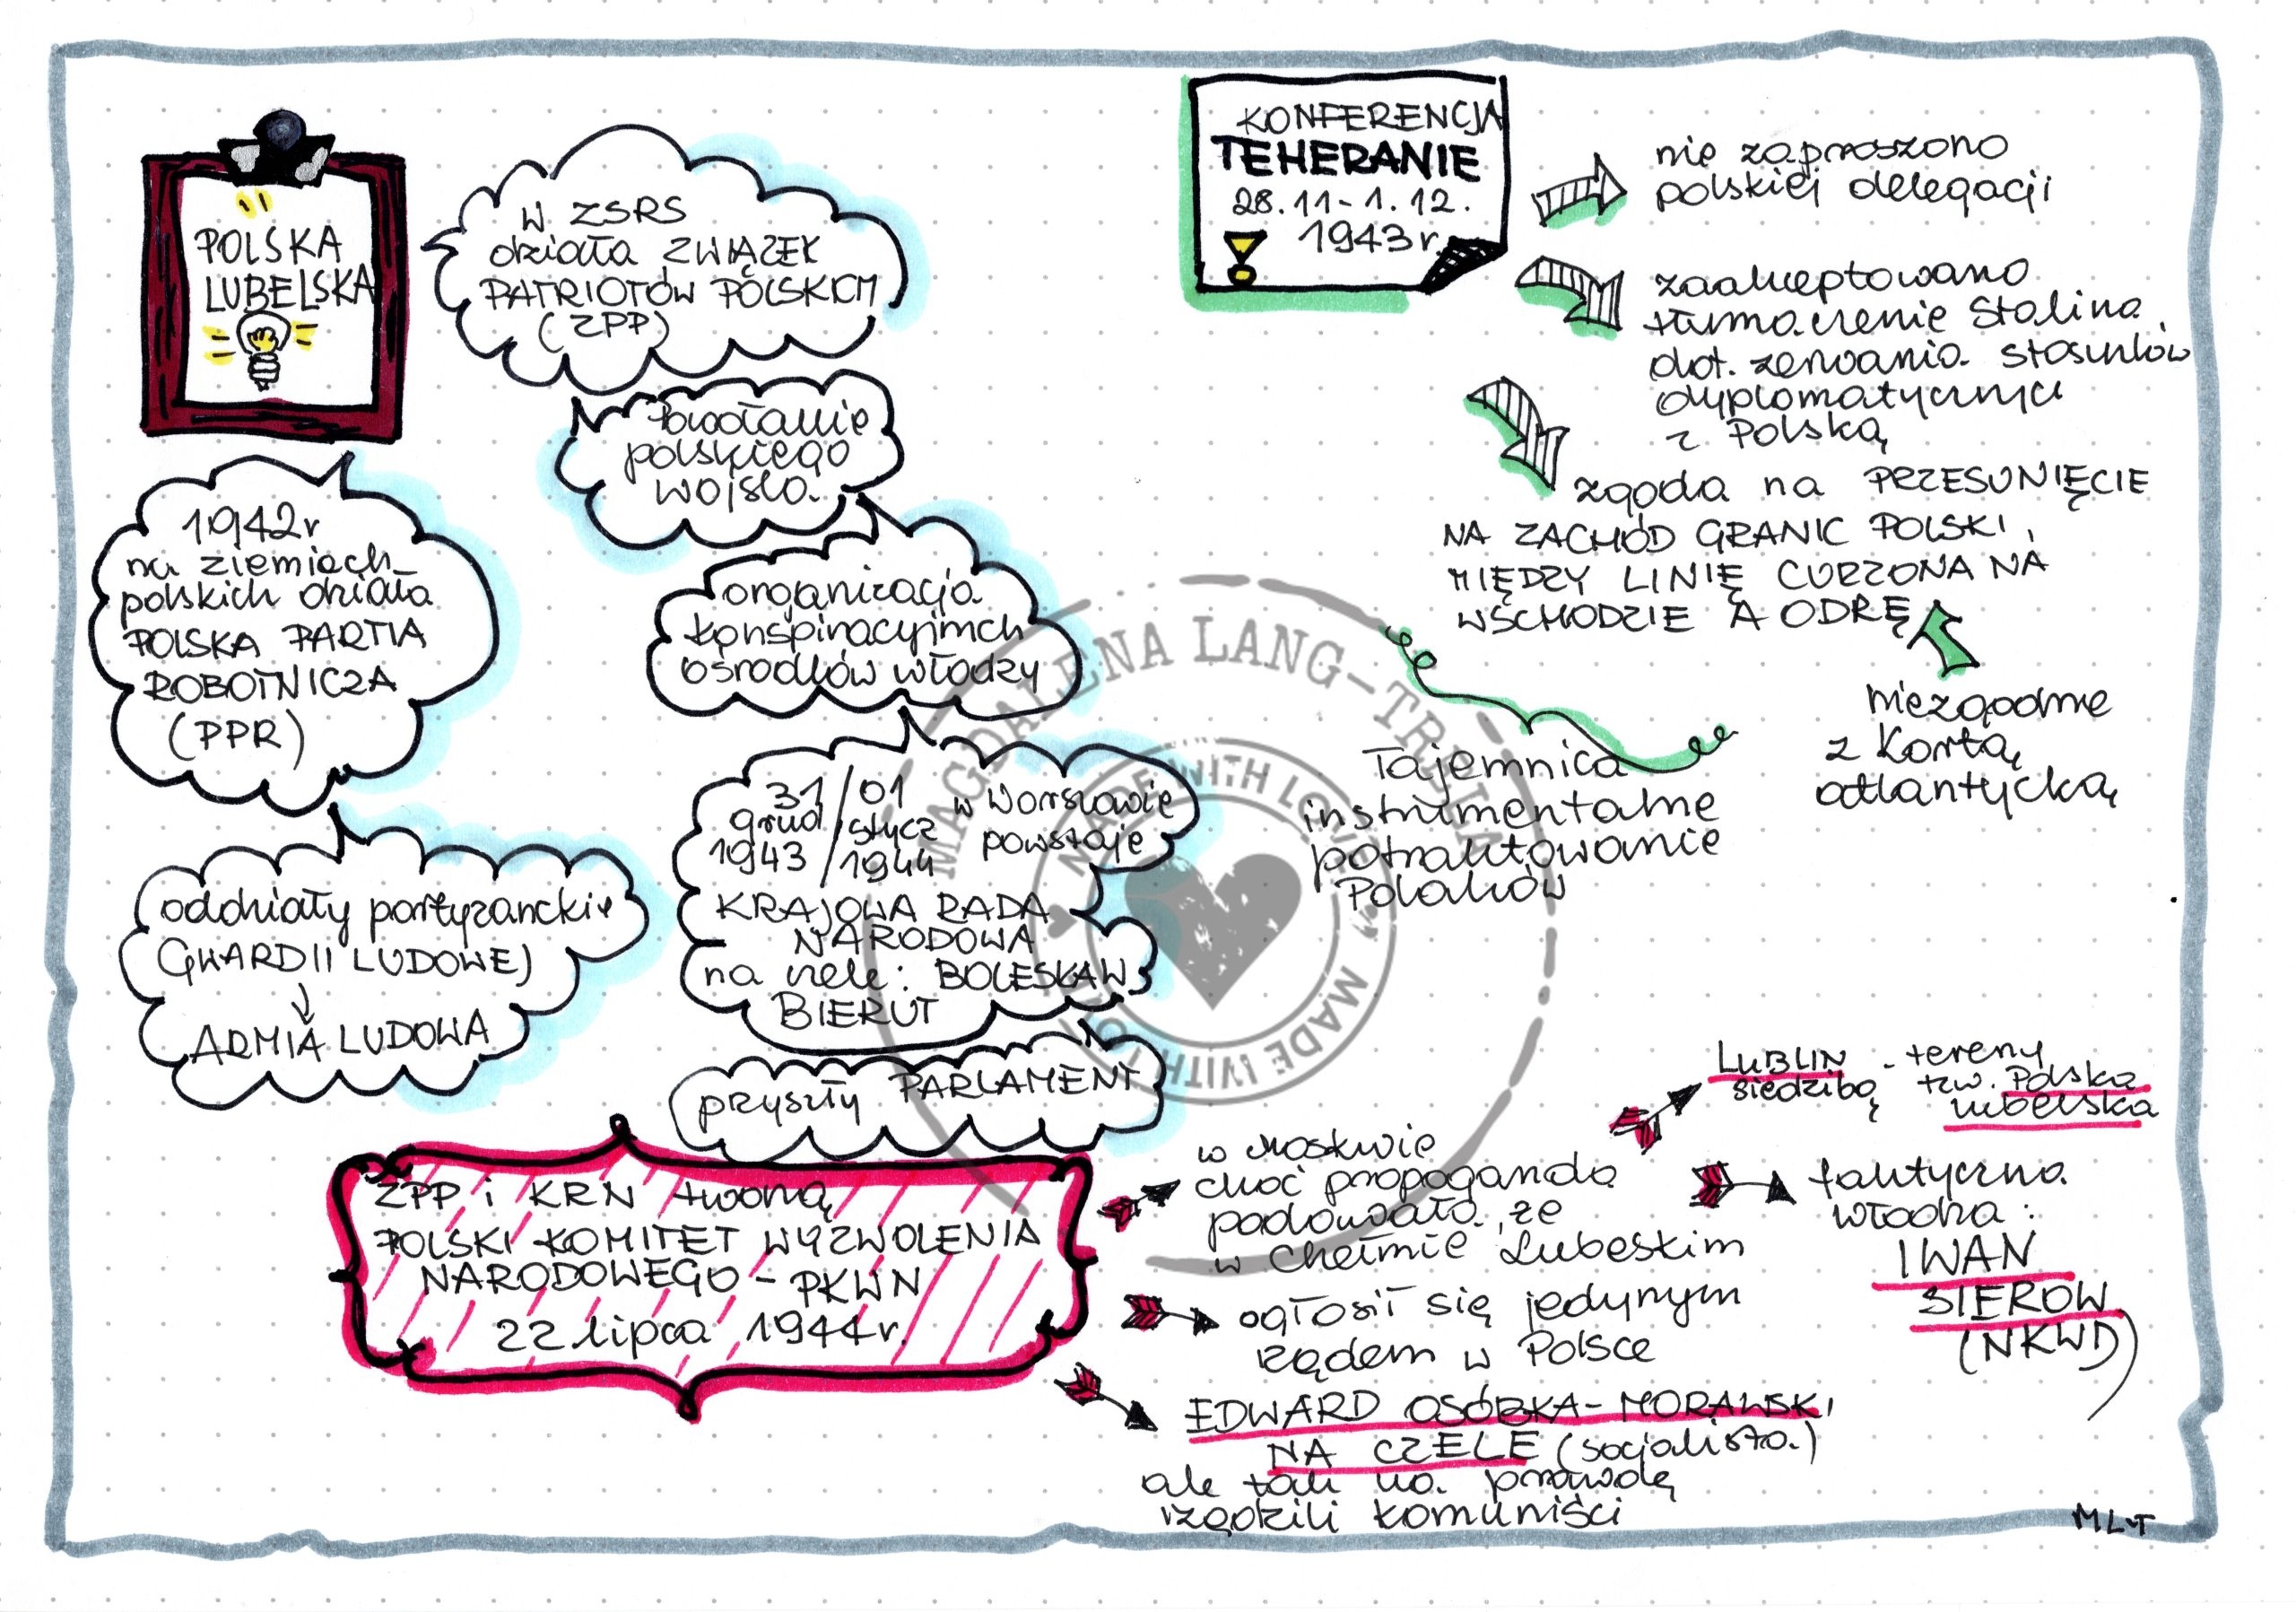 POLSKA
LUBELSKA
W ZSRS
działa ZWIĄZEK
PATRIOTÓW POLSKICH
(ZPP)
Powołanie
polskiego
wojska
organizacja
konspiracyjnych
ośrodków władzy
31/01
grud/stycz
1943/1944
w Warszawie
powstaje
KRAJOWA RADA
NARODOWA
na czele: BOLESŁAW
BIERUT
przyszły PARLAMENT
1942r
na ziemiach
polskich działa
POLSKA PARTIA
ROBOTNICZA
(PPR)
oddziały partyzanckie
GWARDII LUDOWEJ
ARMIA LUDOWA
KONFERENCJA
TEHERANIE
28.11-1.12.
1943r.
nie zaproszono
polskiej delegacji
zaakceptowano
tłumaczenie Stalina
dot. zerwania stosunków
dyplomatycznych
z Polską
zgoda na PRZESUNIĘCIE
NA ZACHÓD GRANIC POLSKI,
MIĘDZY LINIĘ CURZONA NA
WSCHODZIE A ODRĘ
niezgodne
z Kartą
atlantycką
Tajemnica
instrumentalne
potraktowanie
Polaków
ZPP i KRN tworzą
POLSKI KOMITET WYZWOLENIA
NARODOWEGO - PKWN
22 lipca 1944r.
w Moskwie
choć propaganda
podawała, że
w Chełmie Lubeskim
ogłosił się jedynym
rządem w Polsce
EDWARD OSÓBKA-MORAWSKI
NA CZELE (socjalista)
ale tak na prawdę
rządzili komuniści
LUBLIN - tereny
siedzibą tzw. Polska
lubelska
faktyczna
władza:
IWAN
SIEROW
(NKWD)
MLT
MAGDALENA LANG-TRELA
MADE WITH LOVE
MADE WITH LOVE